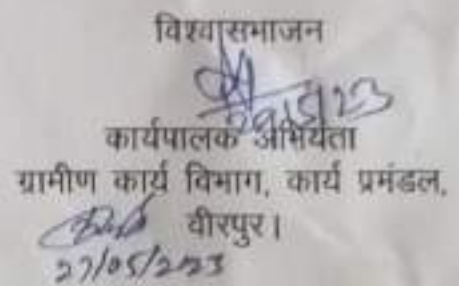 विश्वासभाजन
29/5/23
कार्यपालक अभियंता
ग्रामीण कार्य विभाग, कार्य प्रमंडल,
वीरपुर।
27/05/2023